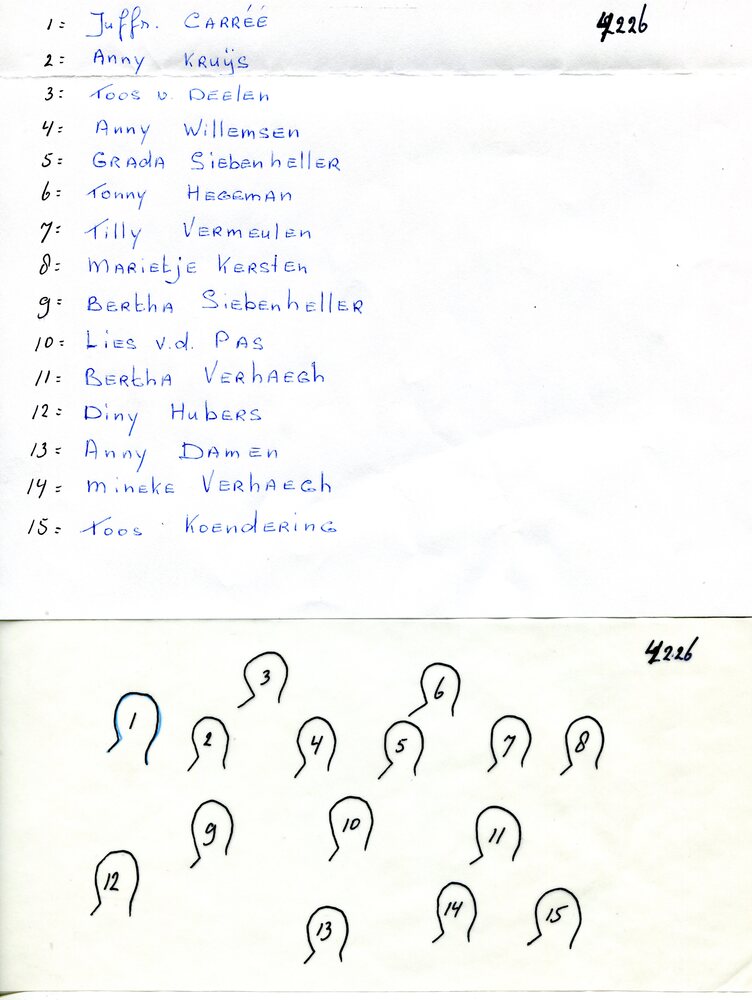 4226
1: Juffr. CARRÉÉ
2: Anny Kruÿs
3: Toos v. Deelen
4: Anny Willemsen
5: GRADA Siebenheller
6: Tonny HEGEMAN
7: Tilly Vermeulen
8: Marietje Kersten
9: Bertha Siebenheller
10: Lies v.d. PAS
11: Bertha Verhaegh
12: Diny Hubers
13: Anny Damen
14: Mineke Verhaegh
15: Toos Koendering
4226
3
6
1
2
4
5
7
8
9
10
11
12
13
14
15